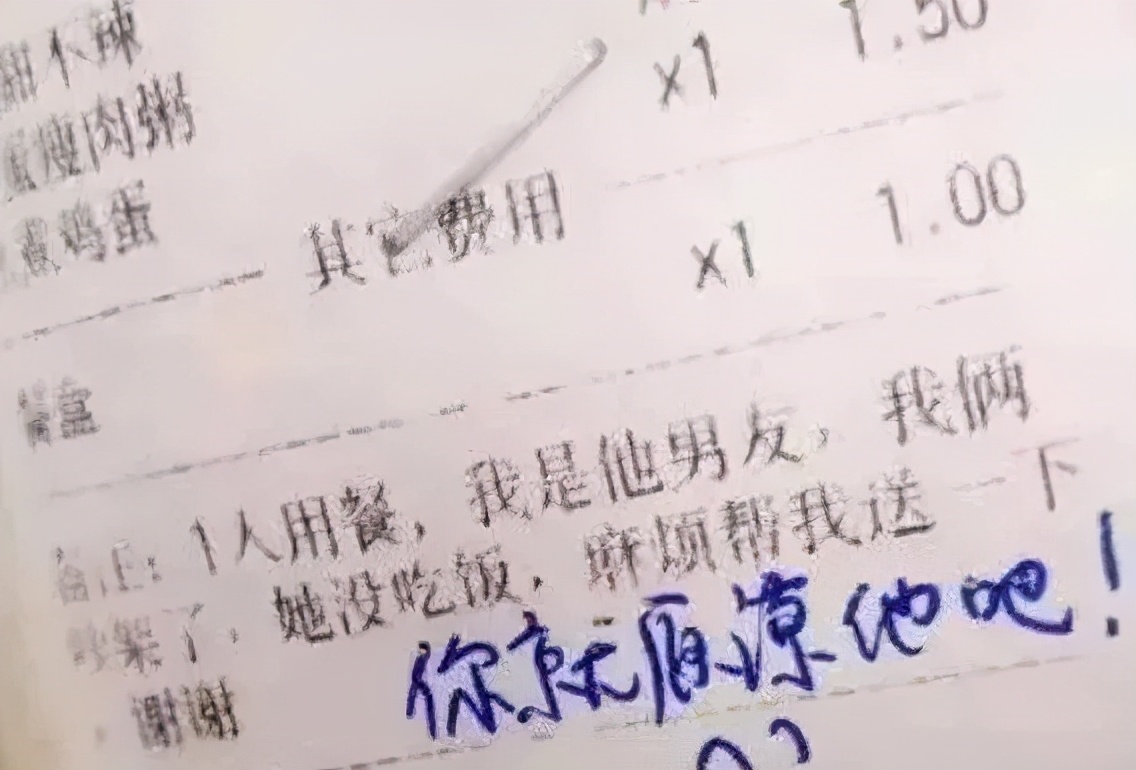 甜不辣
x1
1.50
瘦肉粥
鸡蛋
其它费用
x1
1.00
餐盒
备注:1人用餐,我是他男友,我俩
吵架了,她没吃饭,麻烦帮我送一下
,谢谢
你就原谅他吧!